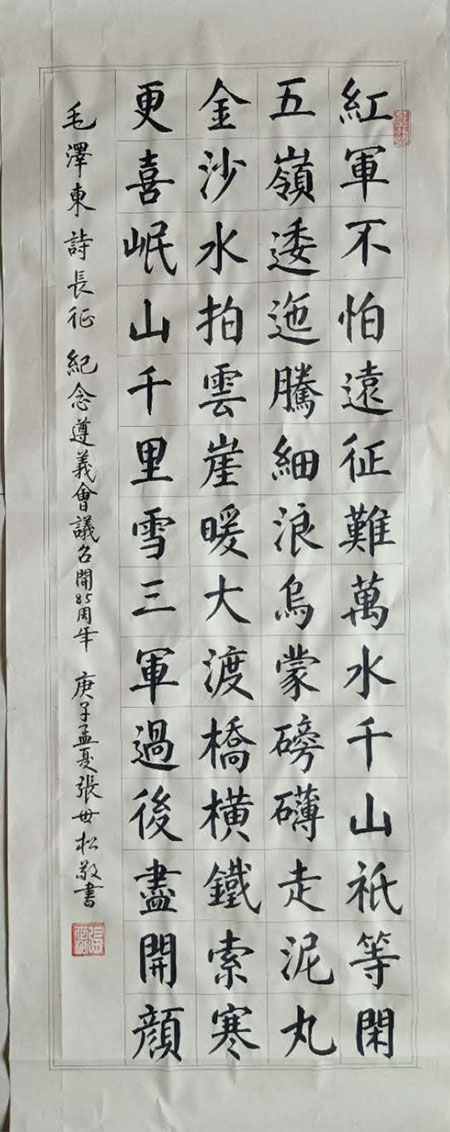 紅軍不怕遠征難萬水千山祇等閑
五嶺逶迤騰細浪烏蒙磅礴走泥丸
金沙水拍雲崖暖大渡橋橫鐵索寒
更喜岷山千里雪三軍過後盡開顔
毛澤東詩長征 紀念遵義會議召開85周年 庚子孟夏張世松敬書